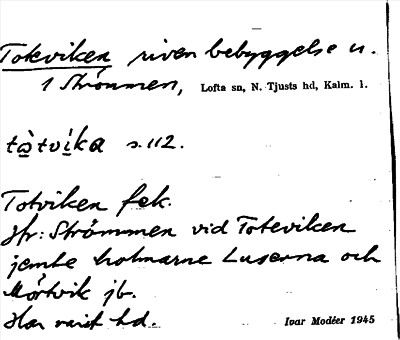 Tokviken riven bebyggelse u.
1 Strömmen, Lofta sn, N. Tjusts hd, Kalm. l.
tòtvíka s. 112.
Totviken fek.
Hr: Strömmen vid Toteviken
jemte holmarne Luserna och
Mörtvik jb.
Har varit hd.
Ivar Modéer 1945